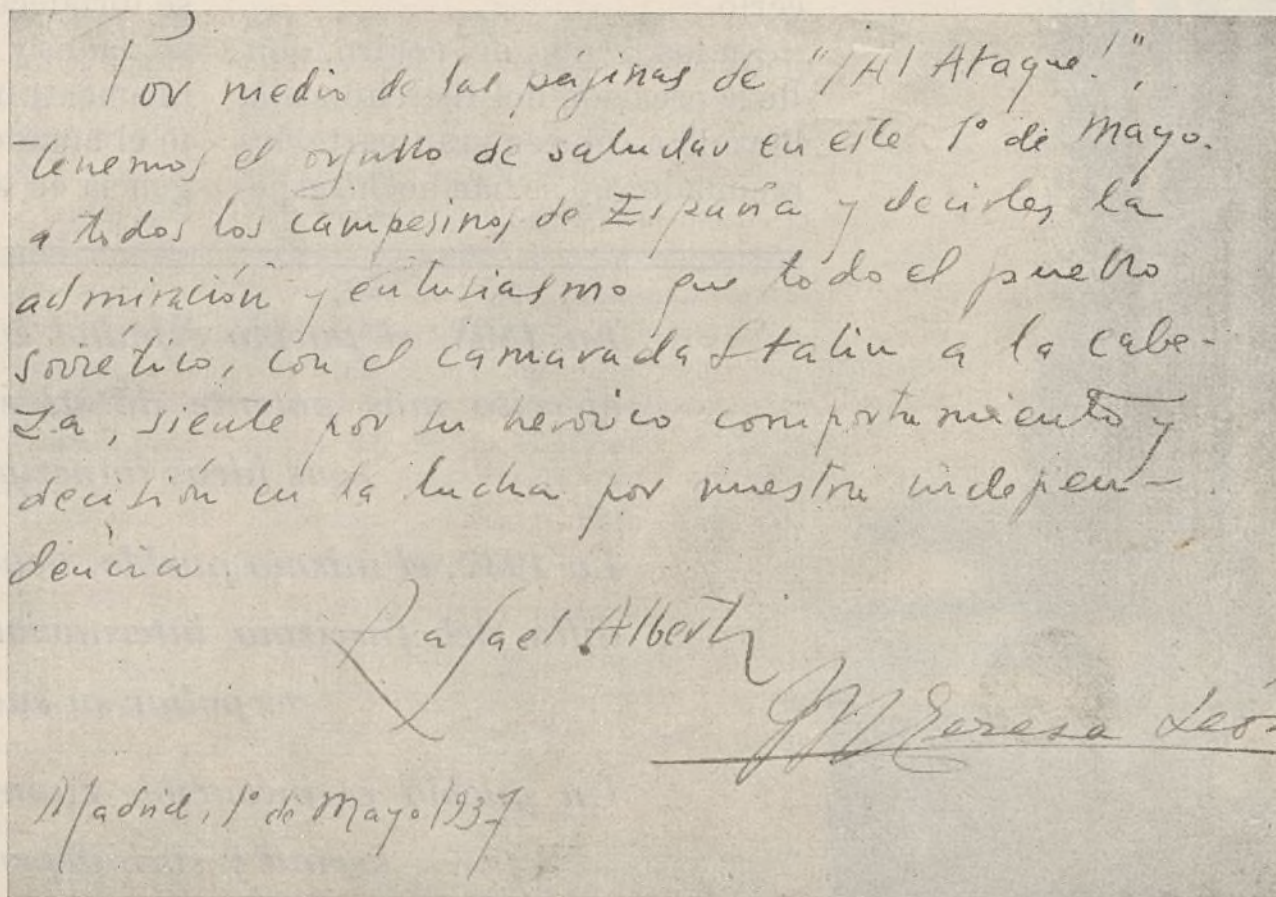 Por medio de las páginas de "¡Al Ataque!",
tenemos el orgullo de saludar en este 1º de Mayo.
a todos los campesinos de España y decirles la
admiración y entusiasmo que todo el pueblo
soviético, con el camarada Stalin a la cabe-
za, siente por su heroico comportamiento y
decisión en la lucha por nuestra indepen-
dencia.
Rafael Alberti
M Teresa León
Madrid, 1º de Mayo 1937